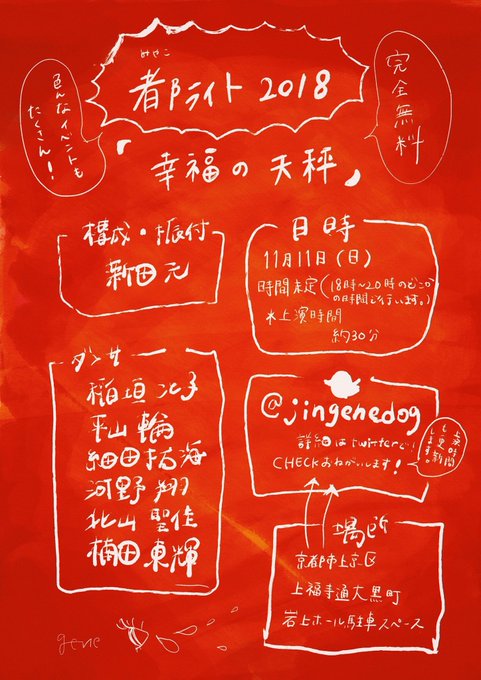 みやこ
都ライト 2018
完全無料
色んなイベントも
たくさん!
「幸福の天秤」
構成・振付
新田 元
日時
11月11日(日)
時間未定(18時〜20時のどこか
の時間で行います。)
※上演時間
約30分
ダンサー
稲垣
平山 輪
細田 拓海
河野 翔
北山 聖佳
楠田 東輝
@jingenedog
詳細はtwitterで
CHECKおねがいします!
上演時間
も更新
します。
場所
京都市上京区
上福寺通大黒町
岩上ホール駐車スペース
gene